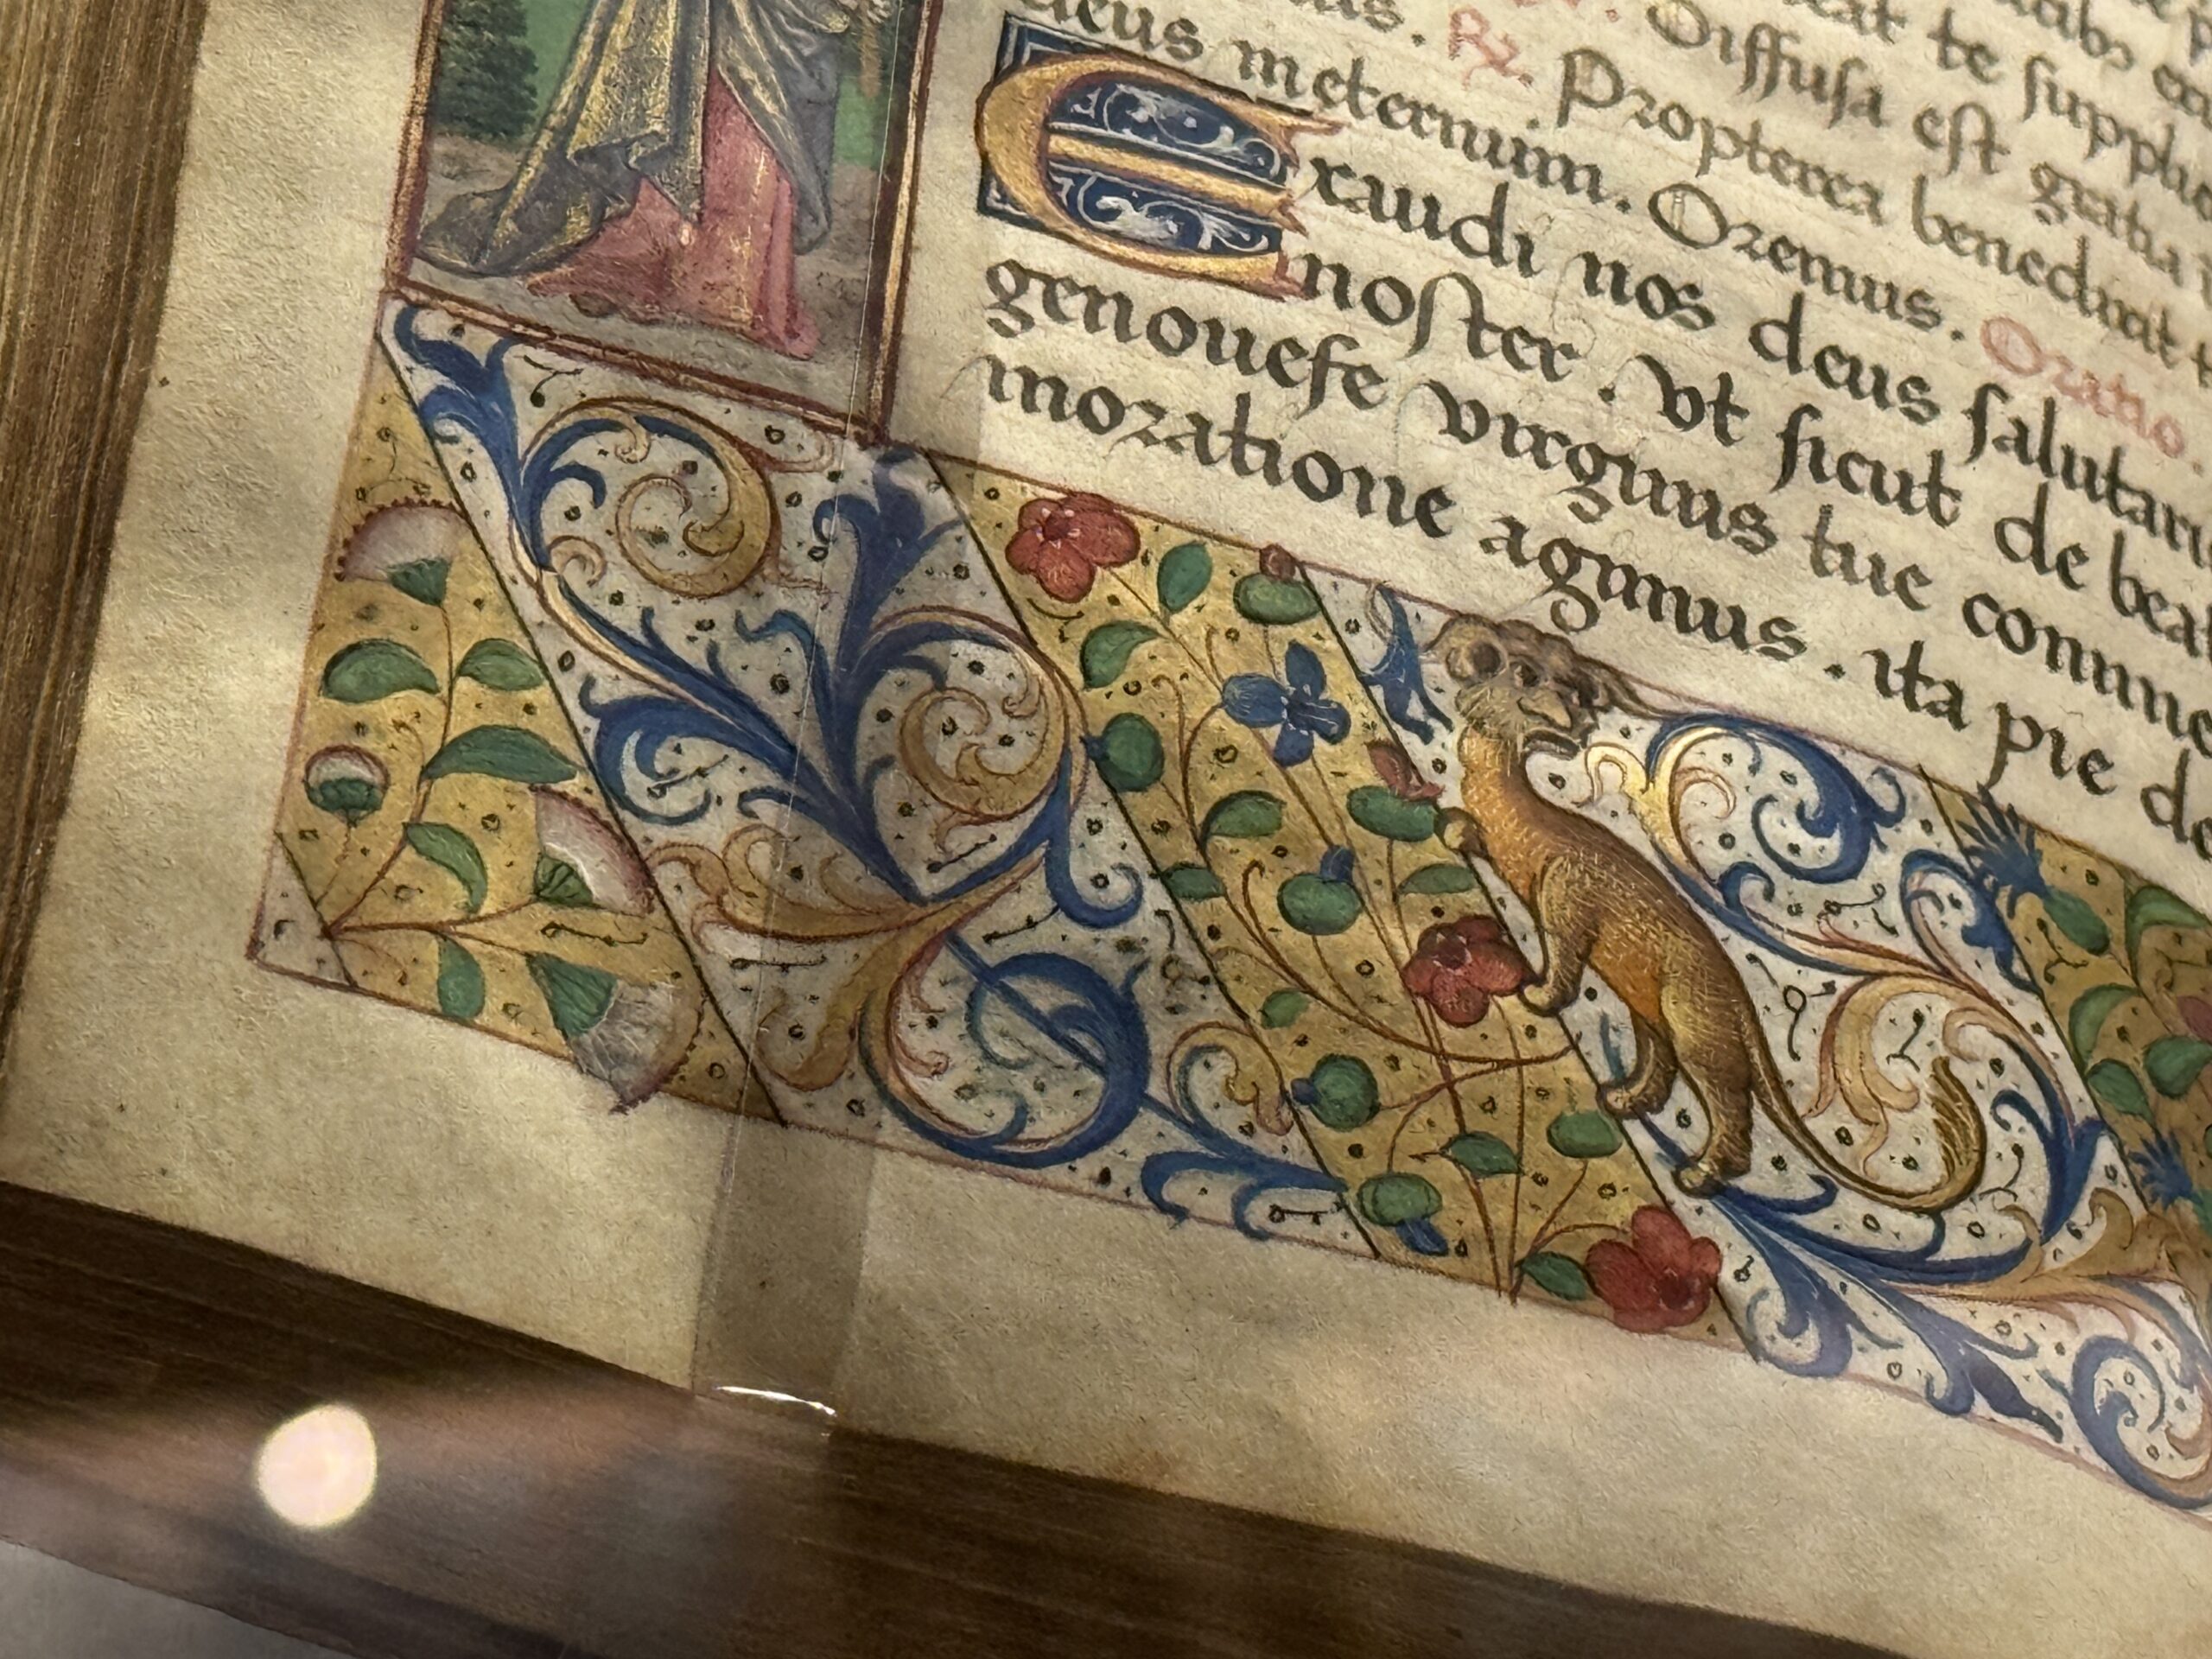 te supplic
Diffusa est gratia
℟. Propterea benedixit t
deus meternum. Oremus. Oratio.
Exaudi nos deus salutari
noster . Vt sicut de beat
genouefe virginis tue comme
moratione agimus . ita pie de